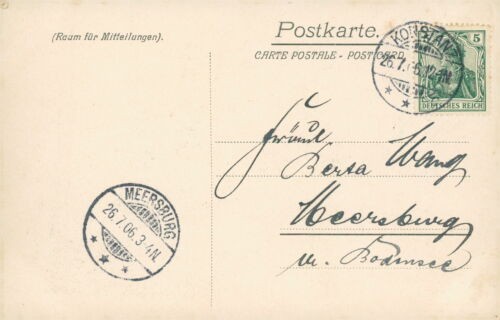 Postkarte.
(Raum für Mitteilungen).
CARTE POSTALE - POST CARD
KONSTANZ
26.7.06.
5
DEUTSCHES REICH
Fräul
Berta Wang
Meersburg
Bodensee
MEERSBURG
26.7.06.3-4N.